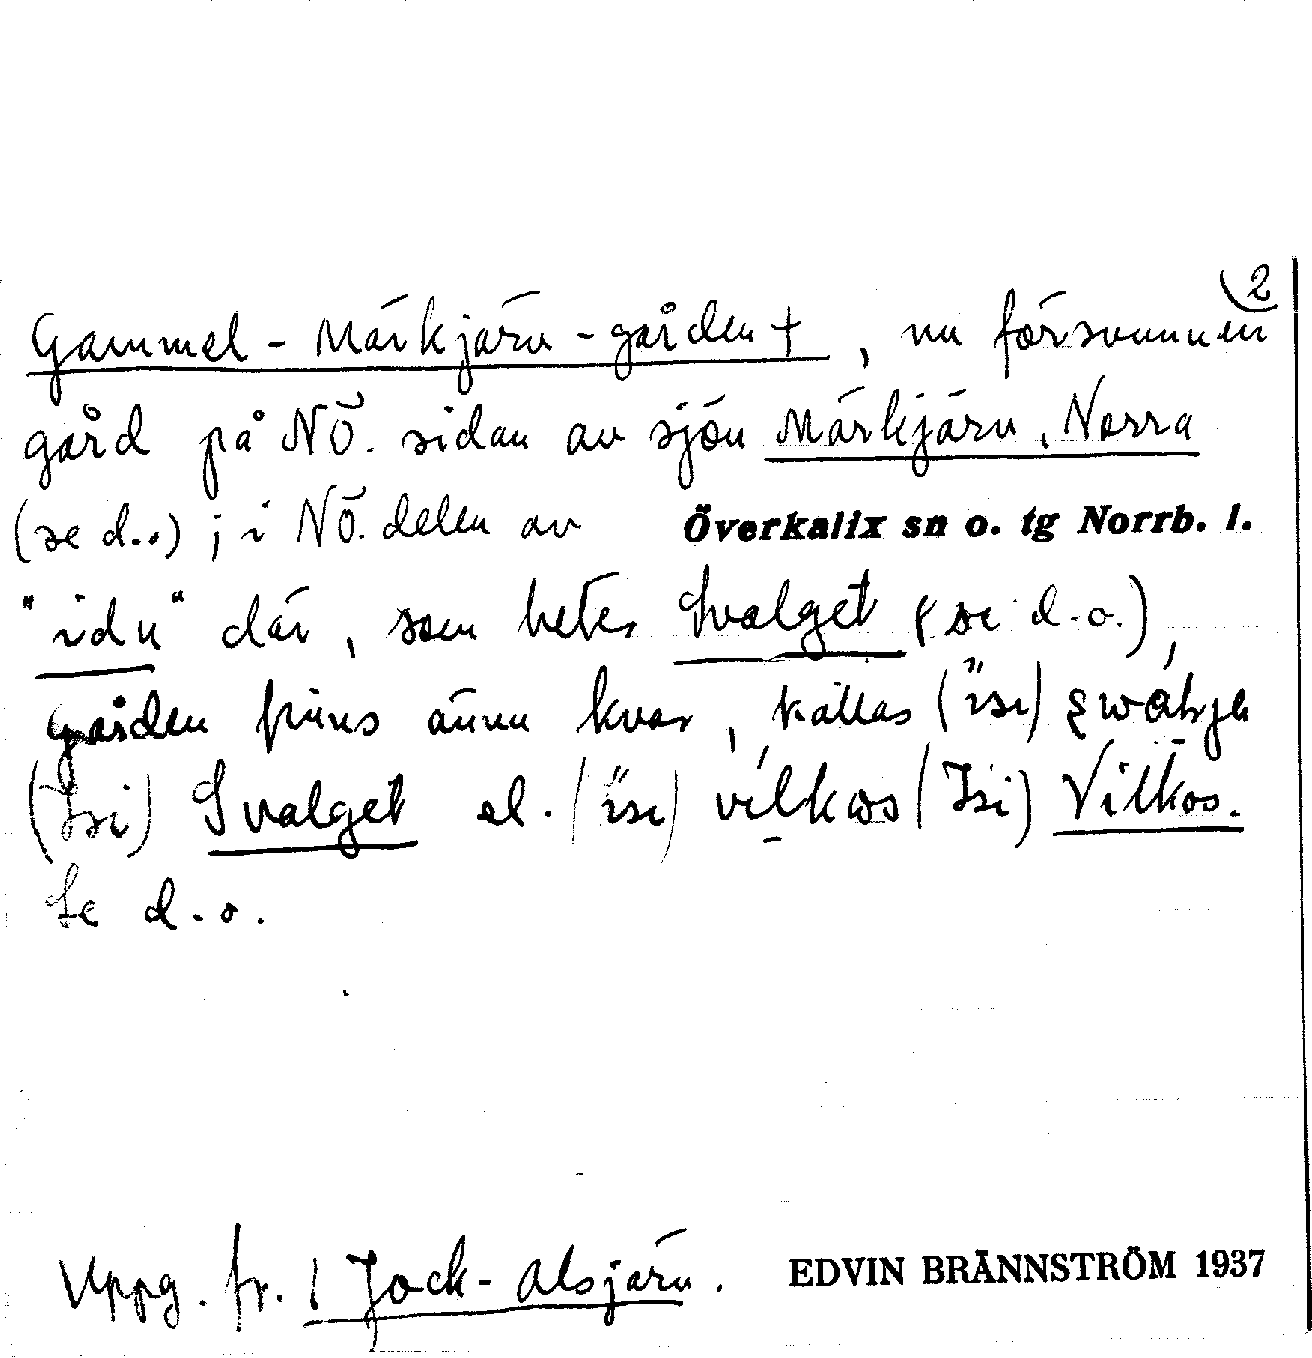 2
Gammel-Märkjärv-gården †, nu försvunnen
gård på NÖ. sidan av sjön Märkjärv, Norra
(se d..) ; i NÖ. delen av Överkalix sn o. tg Norrb. l.
"idu" där, som heter Svalget (se d.o.),
gården finns ännu kvar, kallas
Svalget el. vilkos Vilkos.
Se d.o.
Uppg. fr. Jock-Alsjärv. EDVIN BRÄNNSTRÖM 1937